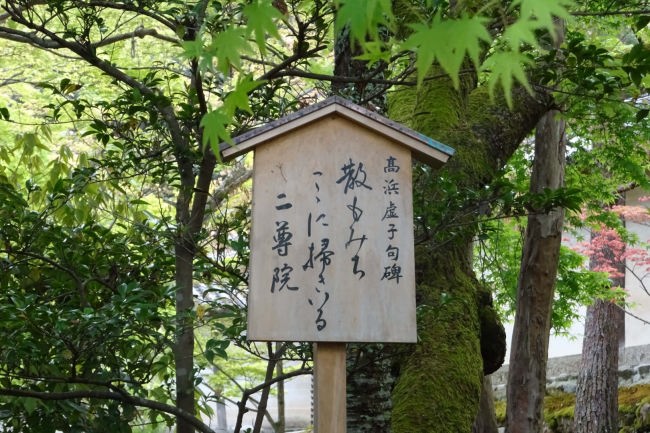 高浜虚子句碑
散もみぢ
ここに掃きゐる
二尊院